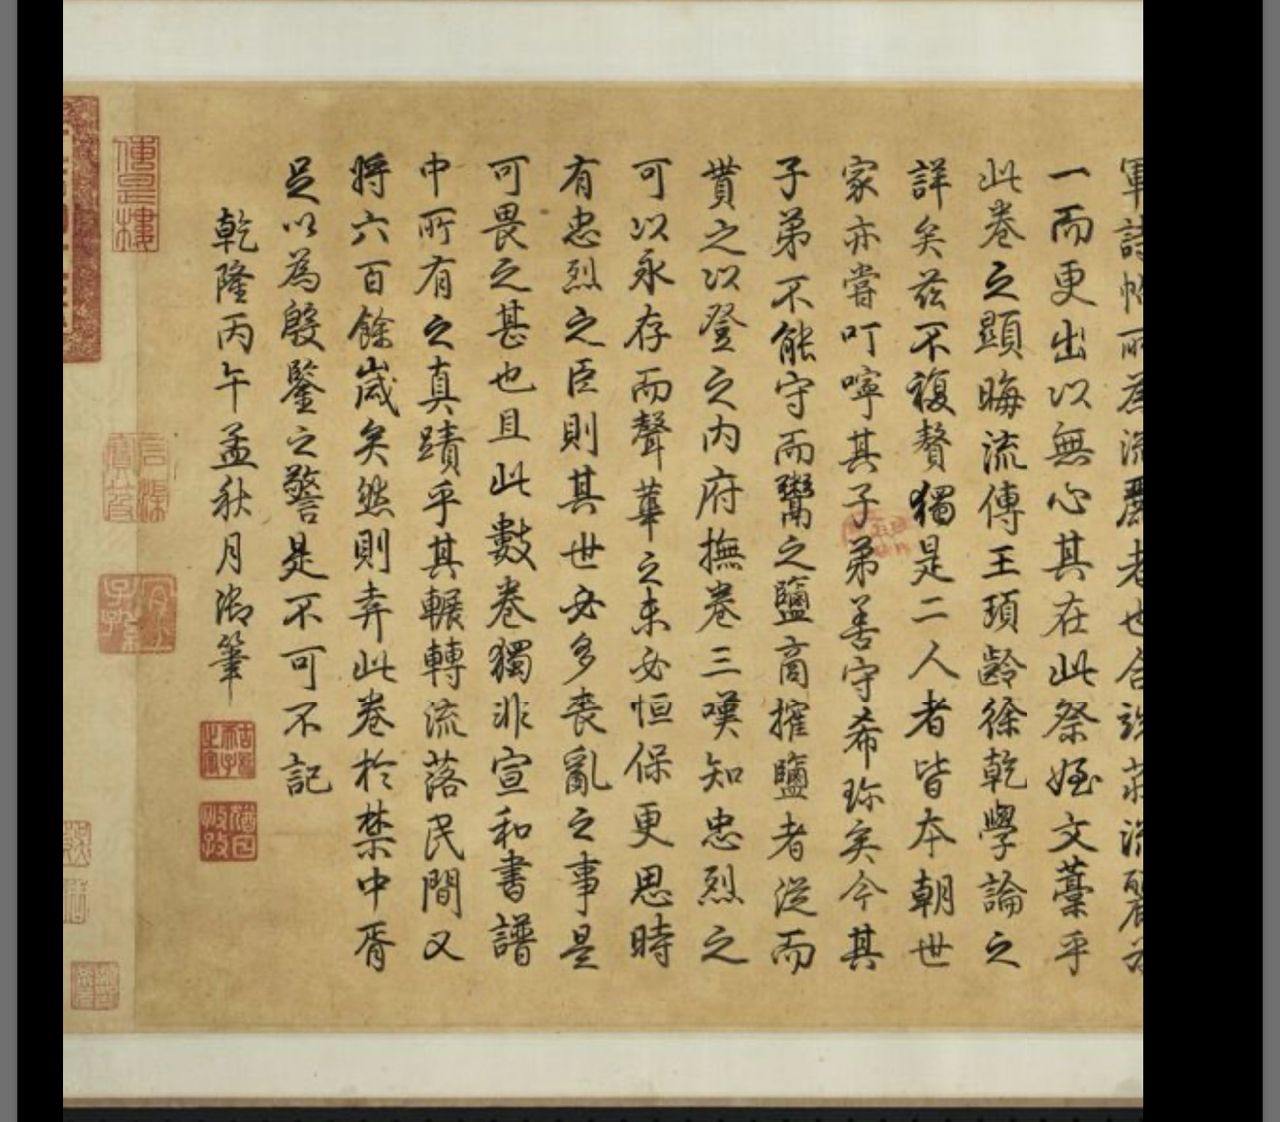 軍詩帖所為流麗者也合
一而更出以無心其在此祭姪文藁乎
此卷之顯晦流傳王頊齡徐乾學論之
詳矣茲不複贅獨是二人者皆本朝世
家亦嘗叮嚀其子弟善守希珎矣今其
子弟不能守而鬻之鹽商搉鹽者從而
貲之以登之內府撫卷三嘆知忠烈之
可以永存而聲華之未必恒保更思時
有忠烈之臣則其世必多喪亂之事是
可畏之甚也且此數卷獨非宣和書譜
中所有之真蹟乎其輾轉流落民間又
將六百餘歲矣然則弆此卷於禁中胥
足以為殷鑒之警是不可不記
乾隆丙午孟秋月御筆
傳是樓